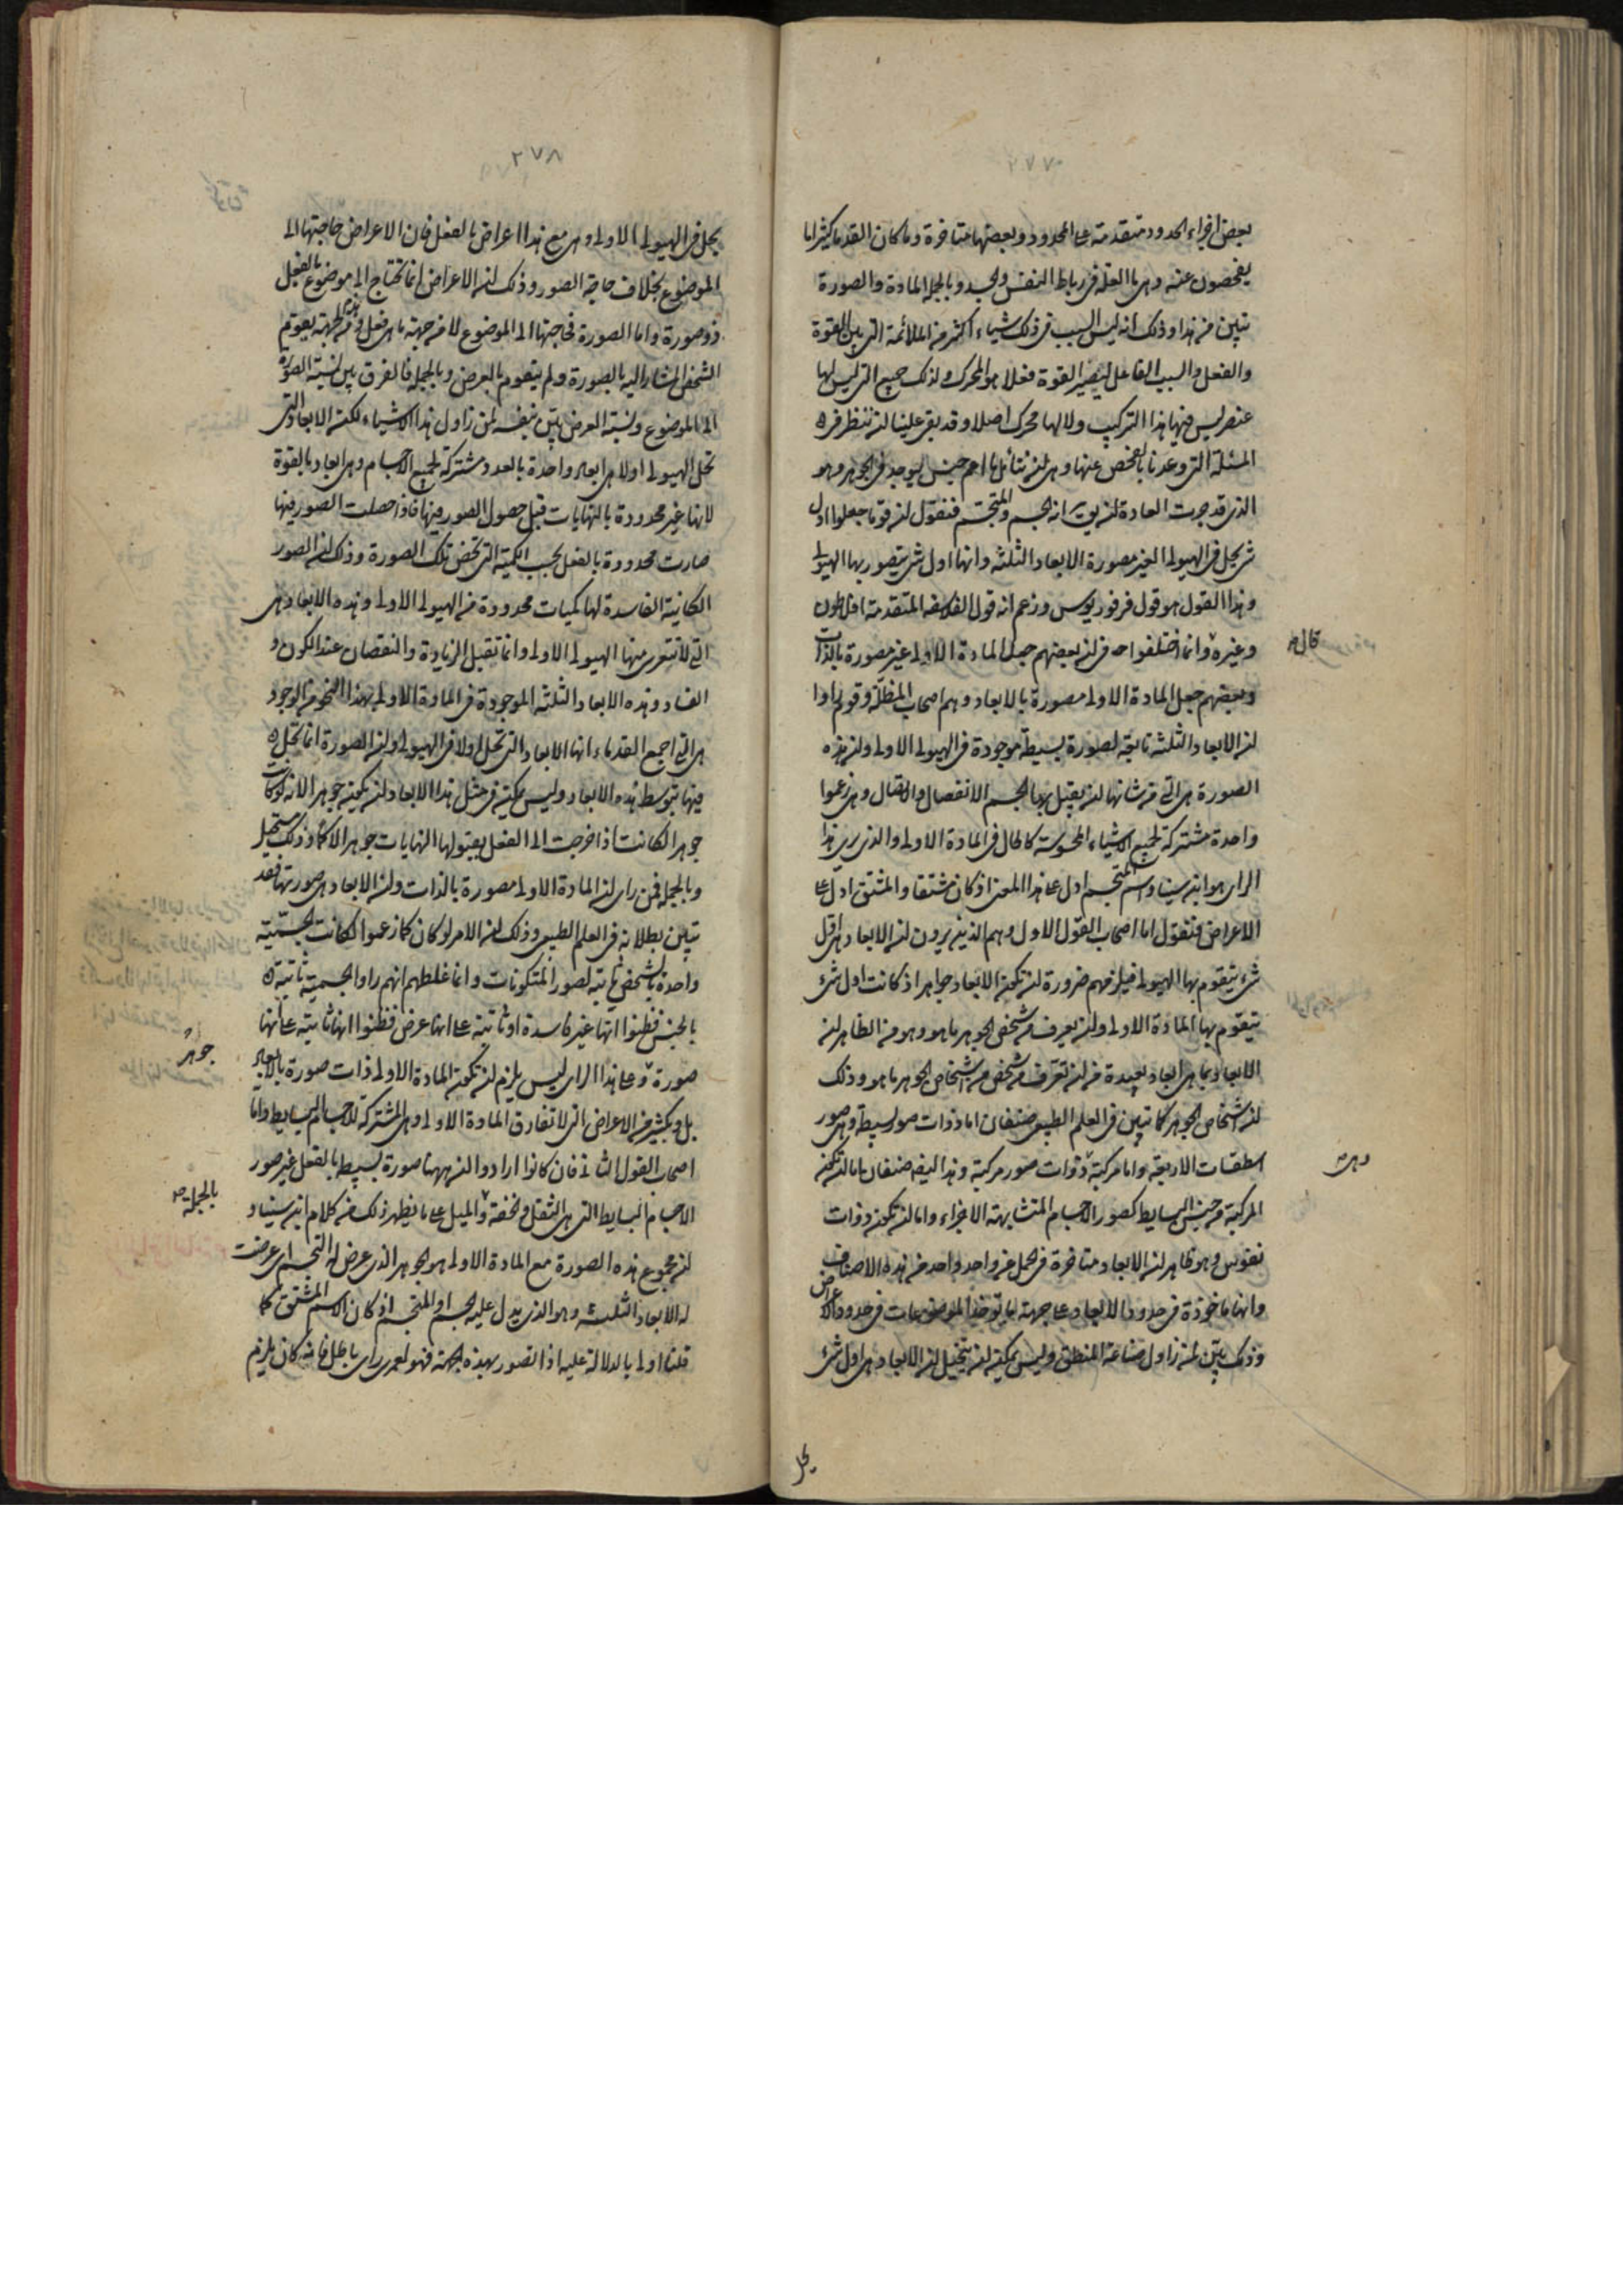 ٢٧٧
بعض اجزاء الحدود متقدمة على المحدود وبعضها متاخرة وما كان القدماء كثيرا ما
يفحصون عنه وهى ما العلة فى رباط النفس والجسد وبالجملة المادة والصورة
تبين من هذا وذلك انه ليس السبب فى ذلك شيئا اكثر من الملائمة التى بين القوة
والفعل والسبب الفاعل ليصير القوة فعلا هو المحرك ولذلك جميع التى ليس لها
عنصر ليس فيها هذا التركيب ولا لها محرك اصلا وقد بقى علينا ان ننظر فى
المسئلة التى وعدنا بالفحص عنها وهى ان نتأمل ما اعم جنس يوجد فى الجوهر وهو
الذى قد جرت العادة ان يق انه الجسم والمتجسم فنقول ان قوما جعلوا اول
شئ يحل فى الهيولى الغير مصورة الابعاد الثلثة وانها اول شئ يتصور بها الهيولى
وهذا القول هو قول فرفوريوس وزعم انه قول الفلاسفه المتقدمة افلاطون
وغيره وانما اختلفوا فى ان بعضهم جعل المادة الاولى غير مصورة بالذات
قال
وبعضهم جعل المادة الاولى مصورة بالابعاد وهم اصحاب المظلة وقوم راوا
ان الابعاد الثلثة تابعة لصورة بسيطة موجودة فى الهيولى الاولى وان هذه
الصورة هى التى من شانها ان يقبل بها الجسم الانفصال والاتصال وهى زعموا
واحدة مشتركة لجميع الاشياء المحسوسة كالحال فى المادة الاولى والذى يرى هذا
الراى هو ابن سينا واسم المتجسم ادل على هذا المعنى اذ كان مشتقا والمشتق ادل على
الاعراض فنقول اما اصحاب القول الاول وهم الذين يرون ان الابعاد هى اول
شئ يتقوم بها الهيولى فيلزمهم ضرورة ان تكون الابعاد جواهر اذ كانت اول شئ
يتقوم بها المادة الاولى وان يعرف من شخص الجوهر ما هو وهو من الظاهر ان
الابعاد بما هى ابعاد بعيدة من ان تعرف من شخص من اشخاص الجوهر ما هو وذلك
ان اشخاص الجوهر كما تبين فى العلم الطبيعى صنفان اما ذوات صور بسيطة وهى صور
اسطقسات الاربعة واما مركبة وذوات صور مركبة وهذا ايضا صنفان اما ان تكون
وهى
المركبة من جنس البسايط كصور الاجسام المتشابهة الاجزاء واما ان تكون ذوات
نفوس وهو ظاهر ان الابعاد متاخرة فى الحمل عن واحد واحد من هذه الاصناف
وانها ماخوذة فى حدود الابعاد على جهة ما توخذ الموضوعات فى حدود الاعراض
وذلك بين لمن زاول صناعة المنطق وليس يمكن ان يتخيل ان الابعاد هى اول شئ
يحل
٢٧٨
يحل فى الهيولى الاولى وهى مع هذا اعراض بالفعل فان الاعراض حاجتها الى
الموضوع بخلاف حاجة الصور وذلك ان الاعراض انما تحتاج الى موضوع بالفعل
ذو صورة واما الصورة فحاجتها الى الموضوع لا من جهة ما هو فعل ومن هذه الجهة يقوم
الشخص المشار اليه بالصورة ولم يتقوم بالعرض وبالجملة فالفرق بين نسبة الصورة
الى الموضوع ونسبة العرض بين بنفسه لمن زاول هذه الاشياء لكن الابعاد التى
تحل الهيولى اولا هى ابعاد واحدة بالعدد مشتركة لجميع الاجسام وهى ابعاد بالقوة
لانها غير محدودة بالنهايات قبل حصول الصور فيها فاذا حصلت الصور فيها
صارت محدودة بالفعل بحسب الكمية التى تخص تلك الصورة وذلك ان الصور
الكائنة الفاسدة لها كميات محدودة من الهيولى الاولى وهذه الابعاد هى
التى لا تتعرى منها الهيولى الاولى وانما تقبل الزيادة والنقصان عند الكون و
الفساد وهذه الابعاد الثلثة الموجودة فى المادة الاولى بهذا النحو من الوجود
هى التى اجمع القدماء انها الابعاد التى تحل اولا فى الهيولى وان الصورة انما تحل
فيها بتوسط هذه الابعاد وليس يمكن فى مثل هذه الابعاد ان تكون جوهرا لانه لو كانت
جوهرا لكانت اذا خرجت الى الفعل بقبولها النهايات جوهرا وذلك مستحيل
وبالجملة فمن راى ان المادة الاولى مصورة بالذات وان الابعاد هى صورتها فقد
تبين بطلانه فى العلم الطبيعى وذلك ان الامر لو كان كما زعموا لكانت الجسمية
واحدة بالشخص ثابتة لصور المتكونات وانما غلطهم انهم راوا الجسمية ثابتة
بالجنس فظنوا انها غير فاسدة او ثابتة على انها عرض فظنوا انها ثابتة على انها
جوهر
صورة وعلى هذا الراى ليس يلزم ان تكون المادة الاولى ذات صورة بالابعاد
بل وبكثير من الاعراض التى لا تفارق المادة الاولى وهى المشتركة للاجسام البسايط واما
اصحاب القول الثانى فان كانوا ارادوا ان ههنا صورة بسيطة بالفعل غير صور
الاجسام البسايط التى هى الثقل والخفة والميل على ما يظهر ذلك من كلام ابن سينا و
بالجملة
ان مجموع هذه الصورة مع المادة الاولى هو الجوهر الذى عرض له التجسم اى عرضت
له الابعاد الثلثة وهو الذى يدل عليه الجسم او المتجسم اذ كان الاسم المشتق كما
قلنا اولى بالدلالة عليه اذا تصور بهذه الجهة فهو لعمرى راى باطل فانه كان يلزم